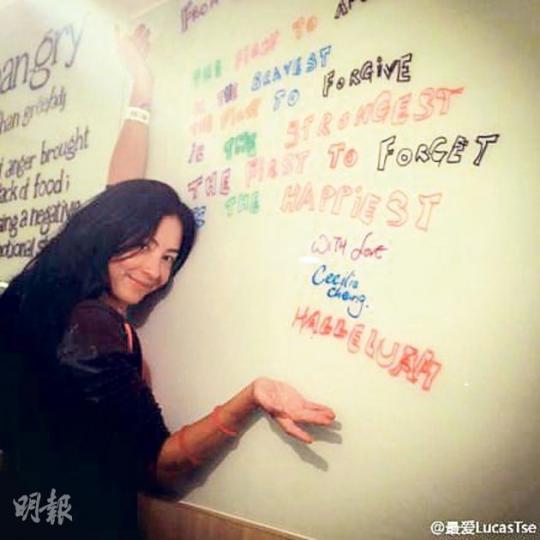 angry
han·gree|adj
anger brought
lack of food;
a negative
emotional
FROM
THE FIRST TO
IS THE BRAVEST
THE FIRST TO FORGIVE
IS THE STRONGEST
THE FIRST TO FORGET
IS THE HAPPIEST
WITH Love
Cecilia
cheung.
HALLELUJAH
明報
@最爱LucasTse